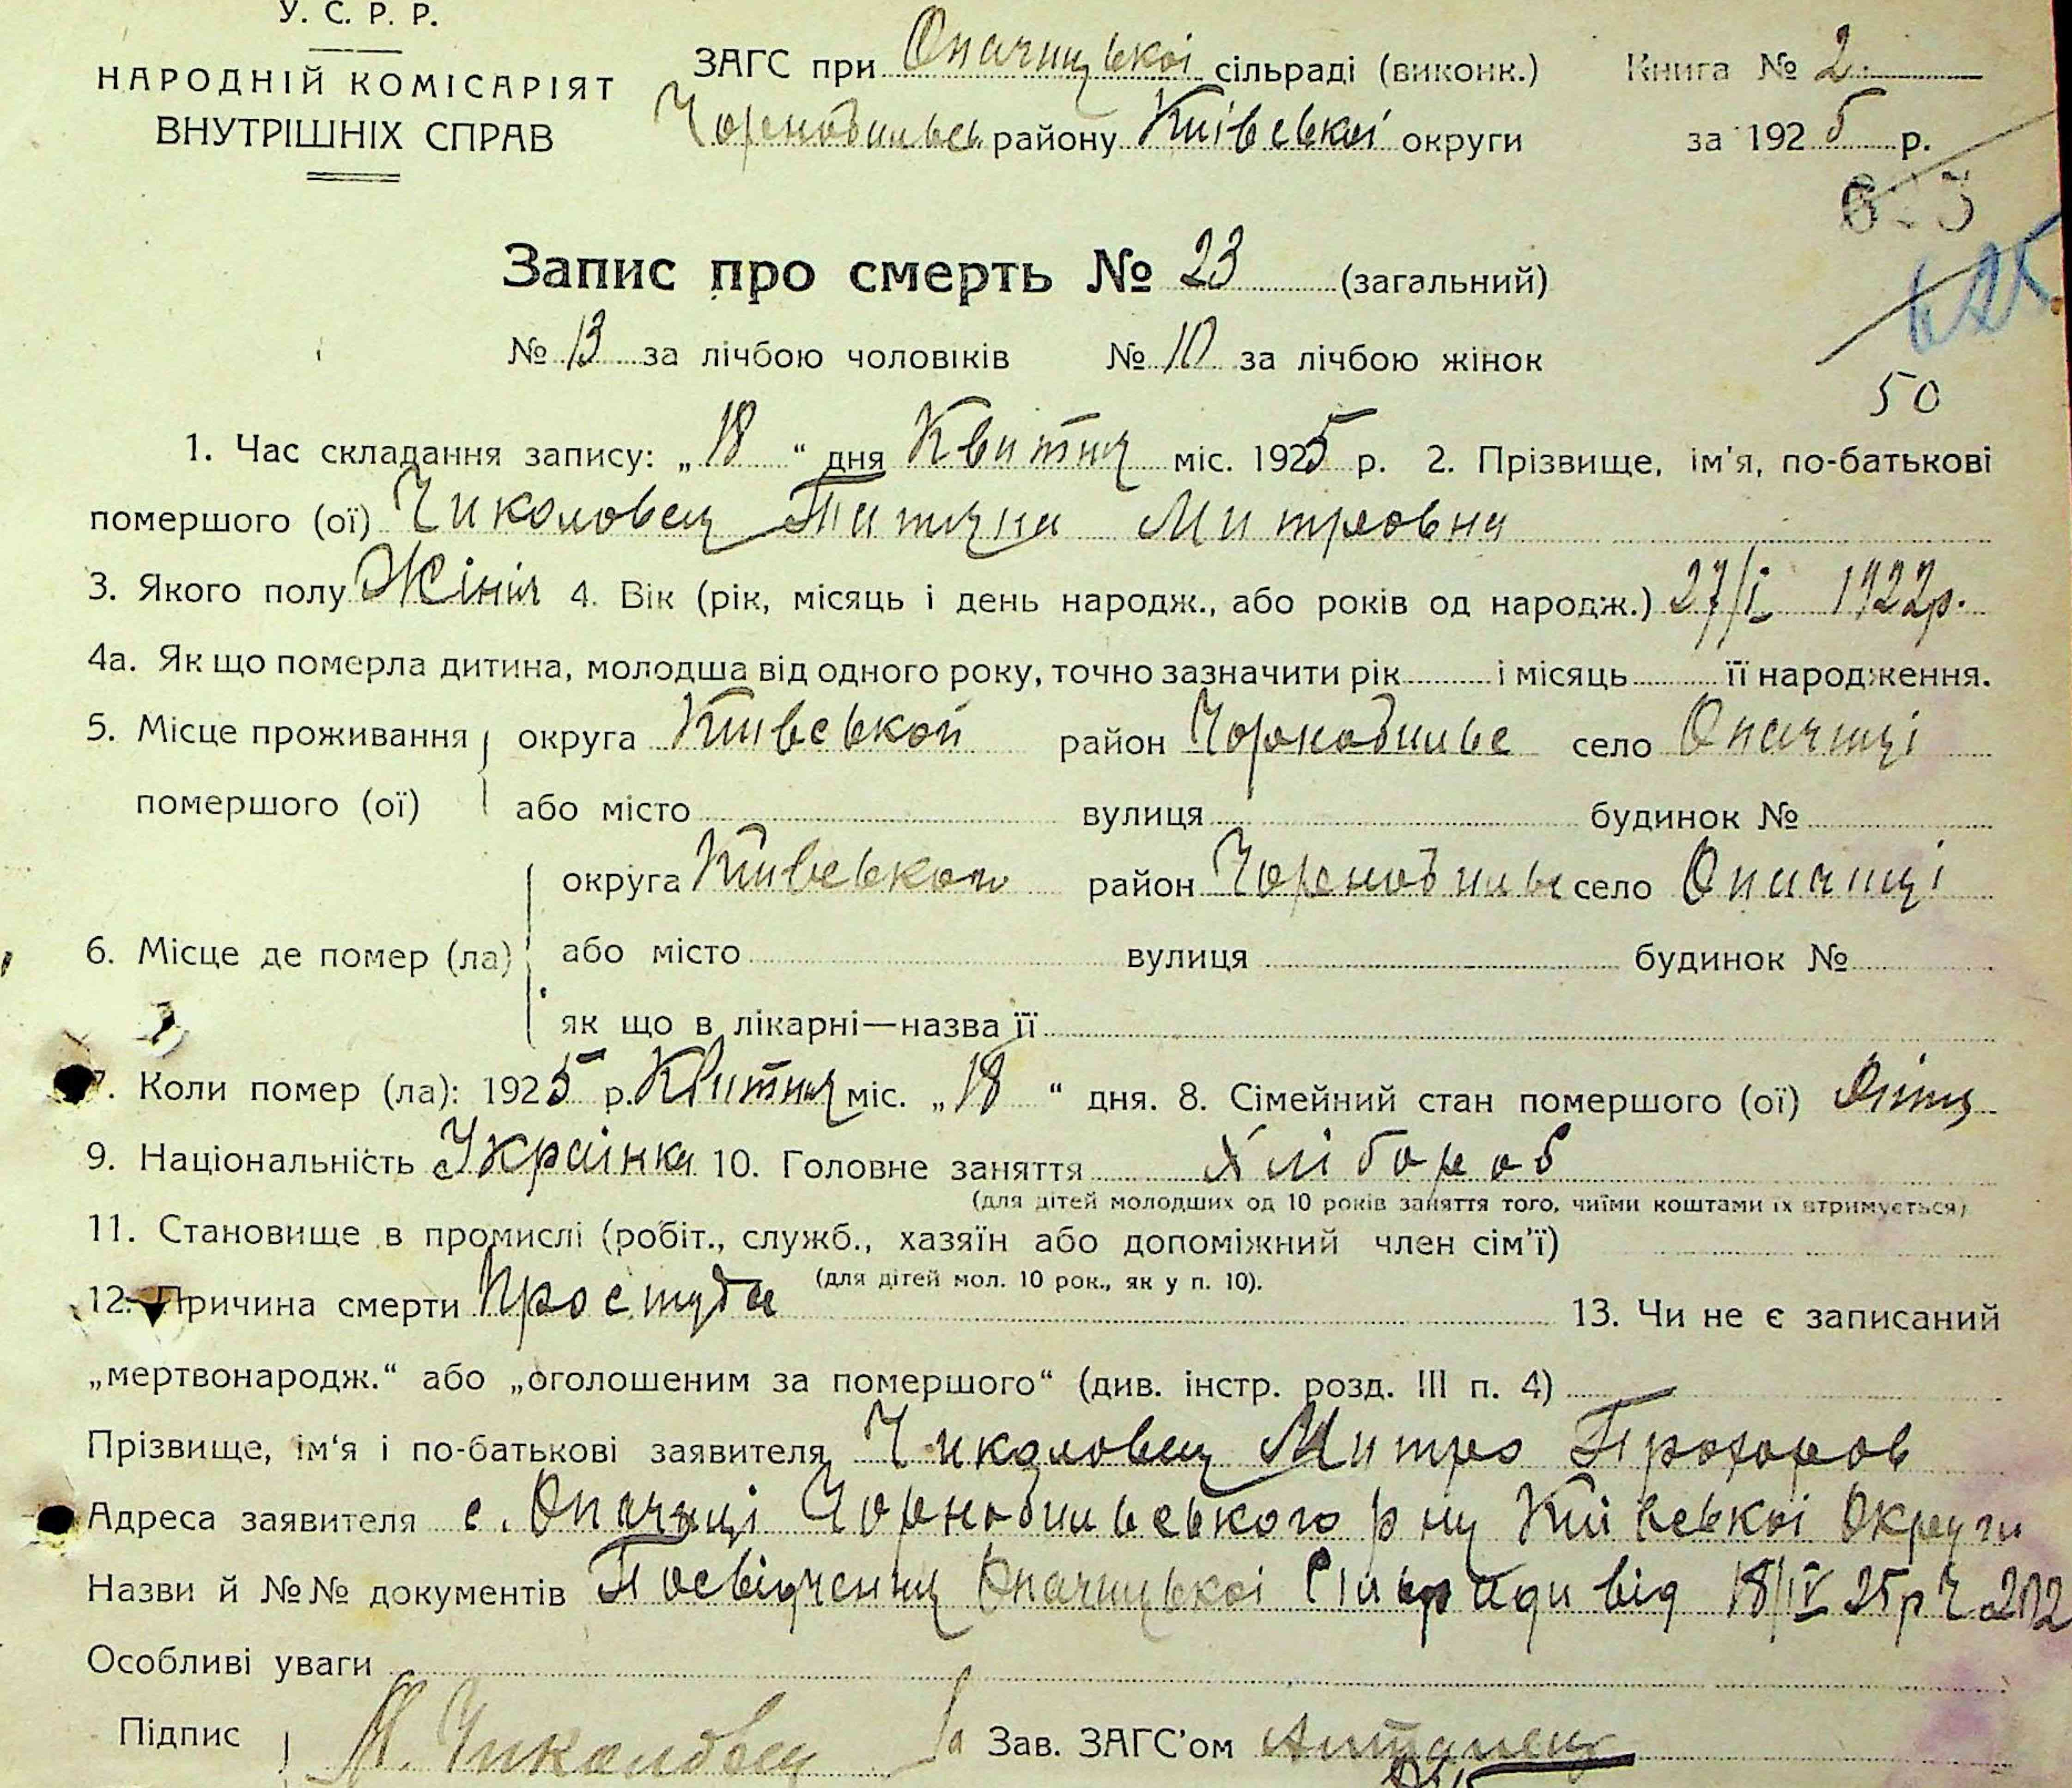 У. С. Р. Р.
НАРОДНІЙ КОМІСАРІЯТ
ВНУТРІШНІХ СПРАВ
ЗАГС при Опачицькоі сільраді (виконк.)
Чорнобильсь району Київськоі округи
Книга № 2.
за 1925 р.
625
50
Запис про смерть № 23 (загальний)
№ 13 за лічбою чоловіків № 10 за лічбою жінок
1. Час складання запису: „18“ дня Квитня міс. 1925 р. 2. Прізвище, ім'я, по-батькові
помершого (ої) Чиколовец Татяна Митровна
3. Якого полу Жіних 4. Вік (рік, місяць і день народж., або років од народж.) 27/I 1922р.
4а. Як що померла дитина, молодша від одного року, точно зазначити рік і місяць її народження.
5. Місце проживання округа Київськой район Чорнобильс село Опачиці
помершого (ої) або місто вулиця будинок №
округа Київськой район Чорнобильс село Опачиці
6. Місце де помер (ла) або місто вулиця будинок №
як що в лікарні—назва її
7. Коли помер (ла): 1925 р. Квитня міс. „18“ дня. 8. Сімейний стан помершого (ої)
9. Національність Украінка 10. Головне заняття Хлібороб
(для дітей молодших од 10 років заняття того, чиїми коштами їх втримується)
11. Становище в промислі (робіт., служб., хазяїн або допоміжний член сім'ї)
(для дітей мол. 10 рок., як у п. 10).
12. Причина смерти Простуда 13. Чи не є записаний
„мертвонародж.“ або „оголошеним за помершого“ (див. інстр. розд. III п. 4) —
Прізвище, ім'я і по-батькові заявителя Чиколовец Митро Прохоров
Адреса заявителя с. Опачиці Чорнобильського р ну Киівськоі Округи
Назви й №№ документів Посвідчення Опачицькоі Сільради від 18/IV 25р Ч 202
Особливі уваги
Підпис М. Чиколовец Зав. ЗАГС'ом